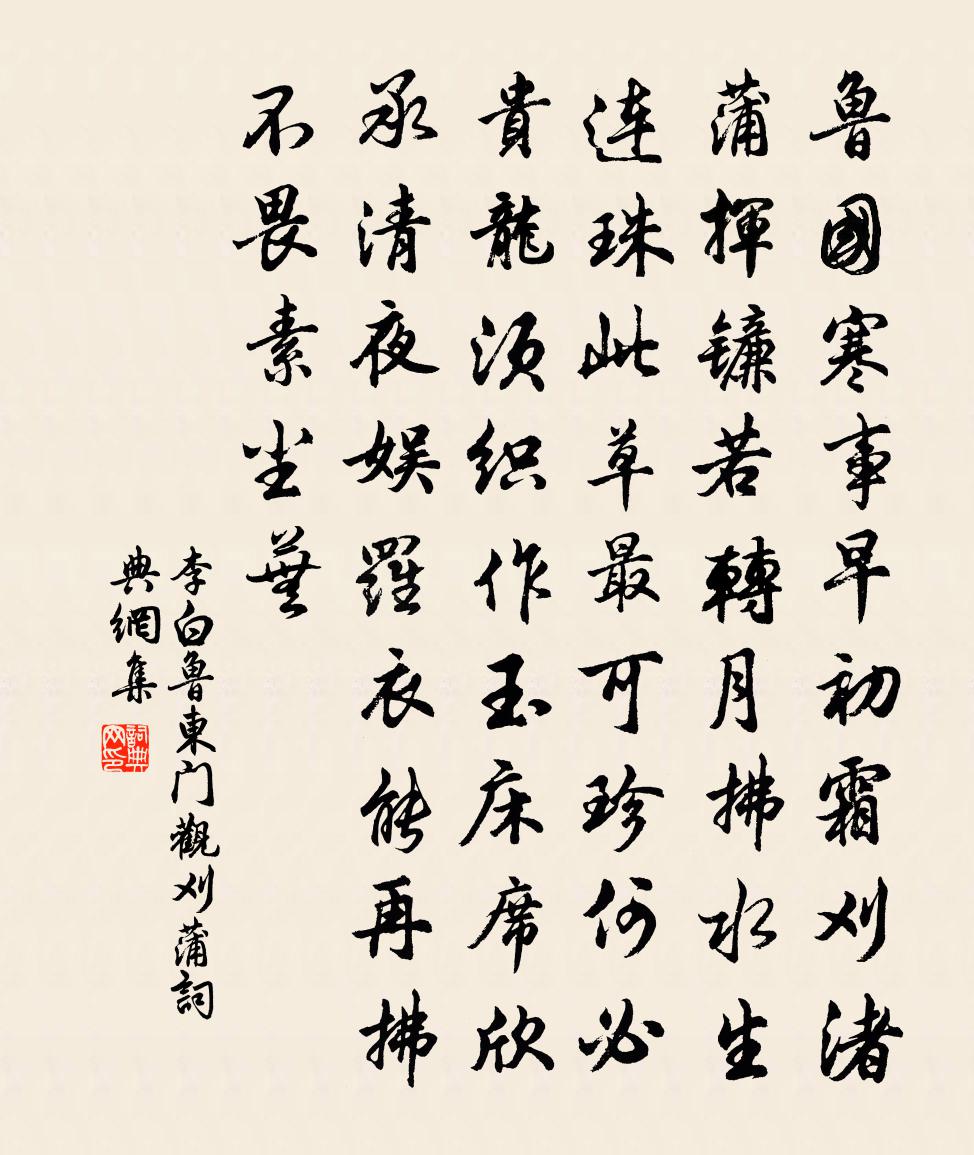 魯國寒事早初霜刈渚
蒲揮鐮若轉月拂水生
連珠此草最可珍何必
貴龍須织作玉床席欣
承清夜娱羅衣能再拂
不畏素尘蕪
李白魯東门觀刈蒲詞
典網集
詞典网印